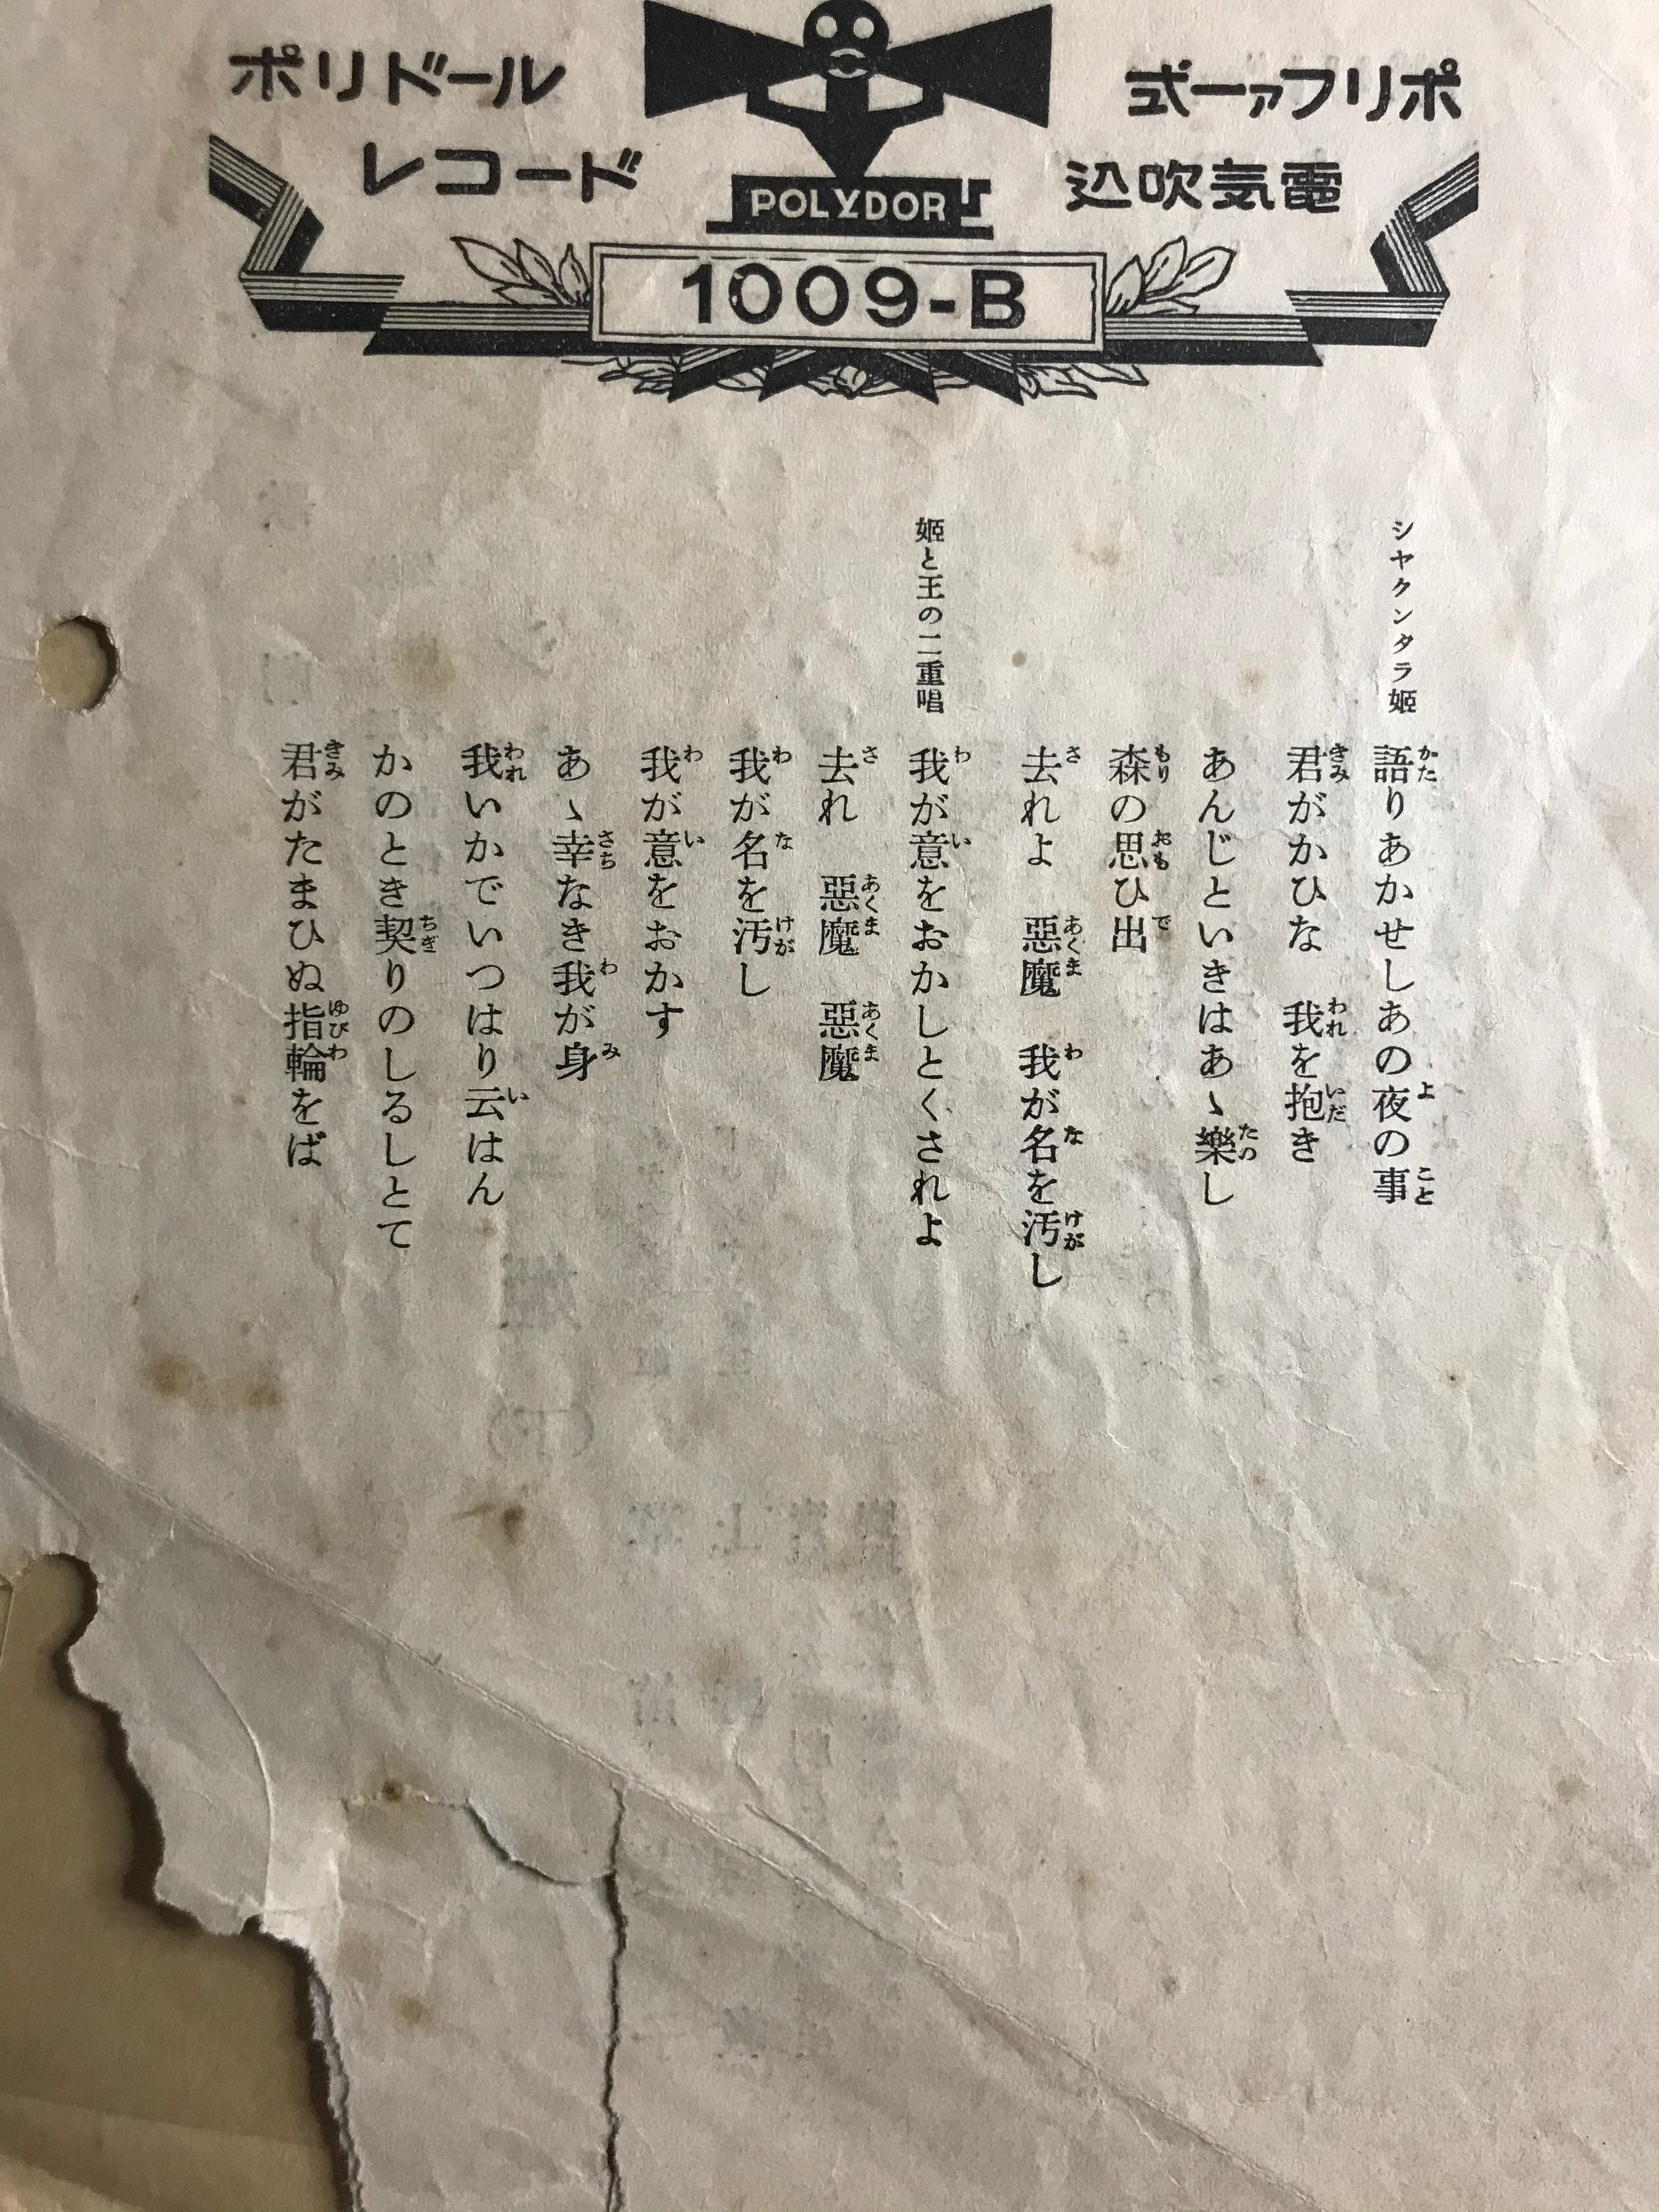 ポリドール
レコード
POLYDOR
式ーァフリポ
込吹気電
1009-B
シヤクンタラ姬
語りあかせしあの夜の事
君がかひな　我を抱き
あんじといきはあゝ樂し
森の思ひ出
去れよ　惡魔　我が名を汚し
姬と王の二重唱
我が意をおかしとくされよ
去れ　惡魔　惡魔
我が名を汚し
我が意をおかす
あゝ幸なき我が身
我いかでいつはり云はん
かのとき契りのしるしとて
君がたまひぬ指輪をば